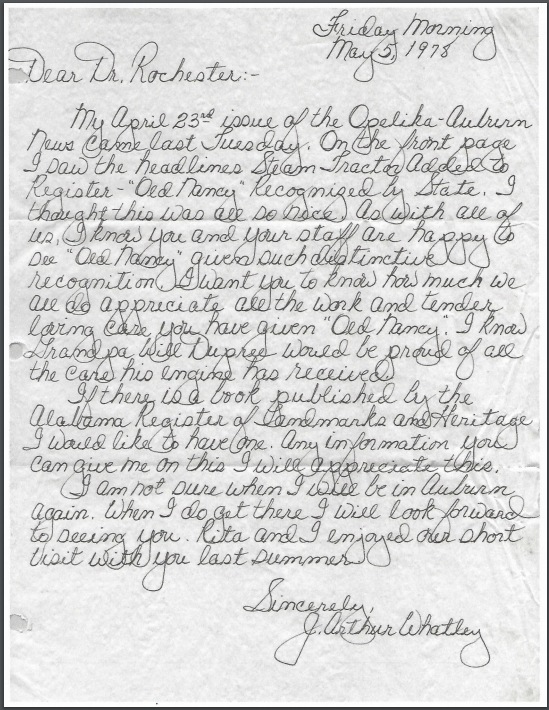 Friday Morning
May 5, 1978
Dear Dr. Rochester:-
My April 23rd issue of the Opelika-Auburn
News came last Tuesday. On the front page
I saw the headlines Steam Tractor Added to
Register-"Old Nancy" Recognized by State. I
thought this was all so nice. As with all of
us, I know you and your staff are happy to
see "Old Nancy" given such distinctive
recognition. I want you to know how much we
all do appreciate all the work and tender
loving care you have given "Old Nancy". I know
Grandpa Will Dupree would be proud of all
the care his engine has received.
If there is a book published by the
Alabama Register of Landmarks and Heritage
I would like to have one. Any information you
can give me on this I will appreciate this.
I am not sure when I will be in Auburn
again. When I do get there I will look forward
to seeing you. Rita and I enjoyed our short
visit with you last summer.
Sincerely,
J. Arthur Whatley